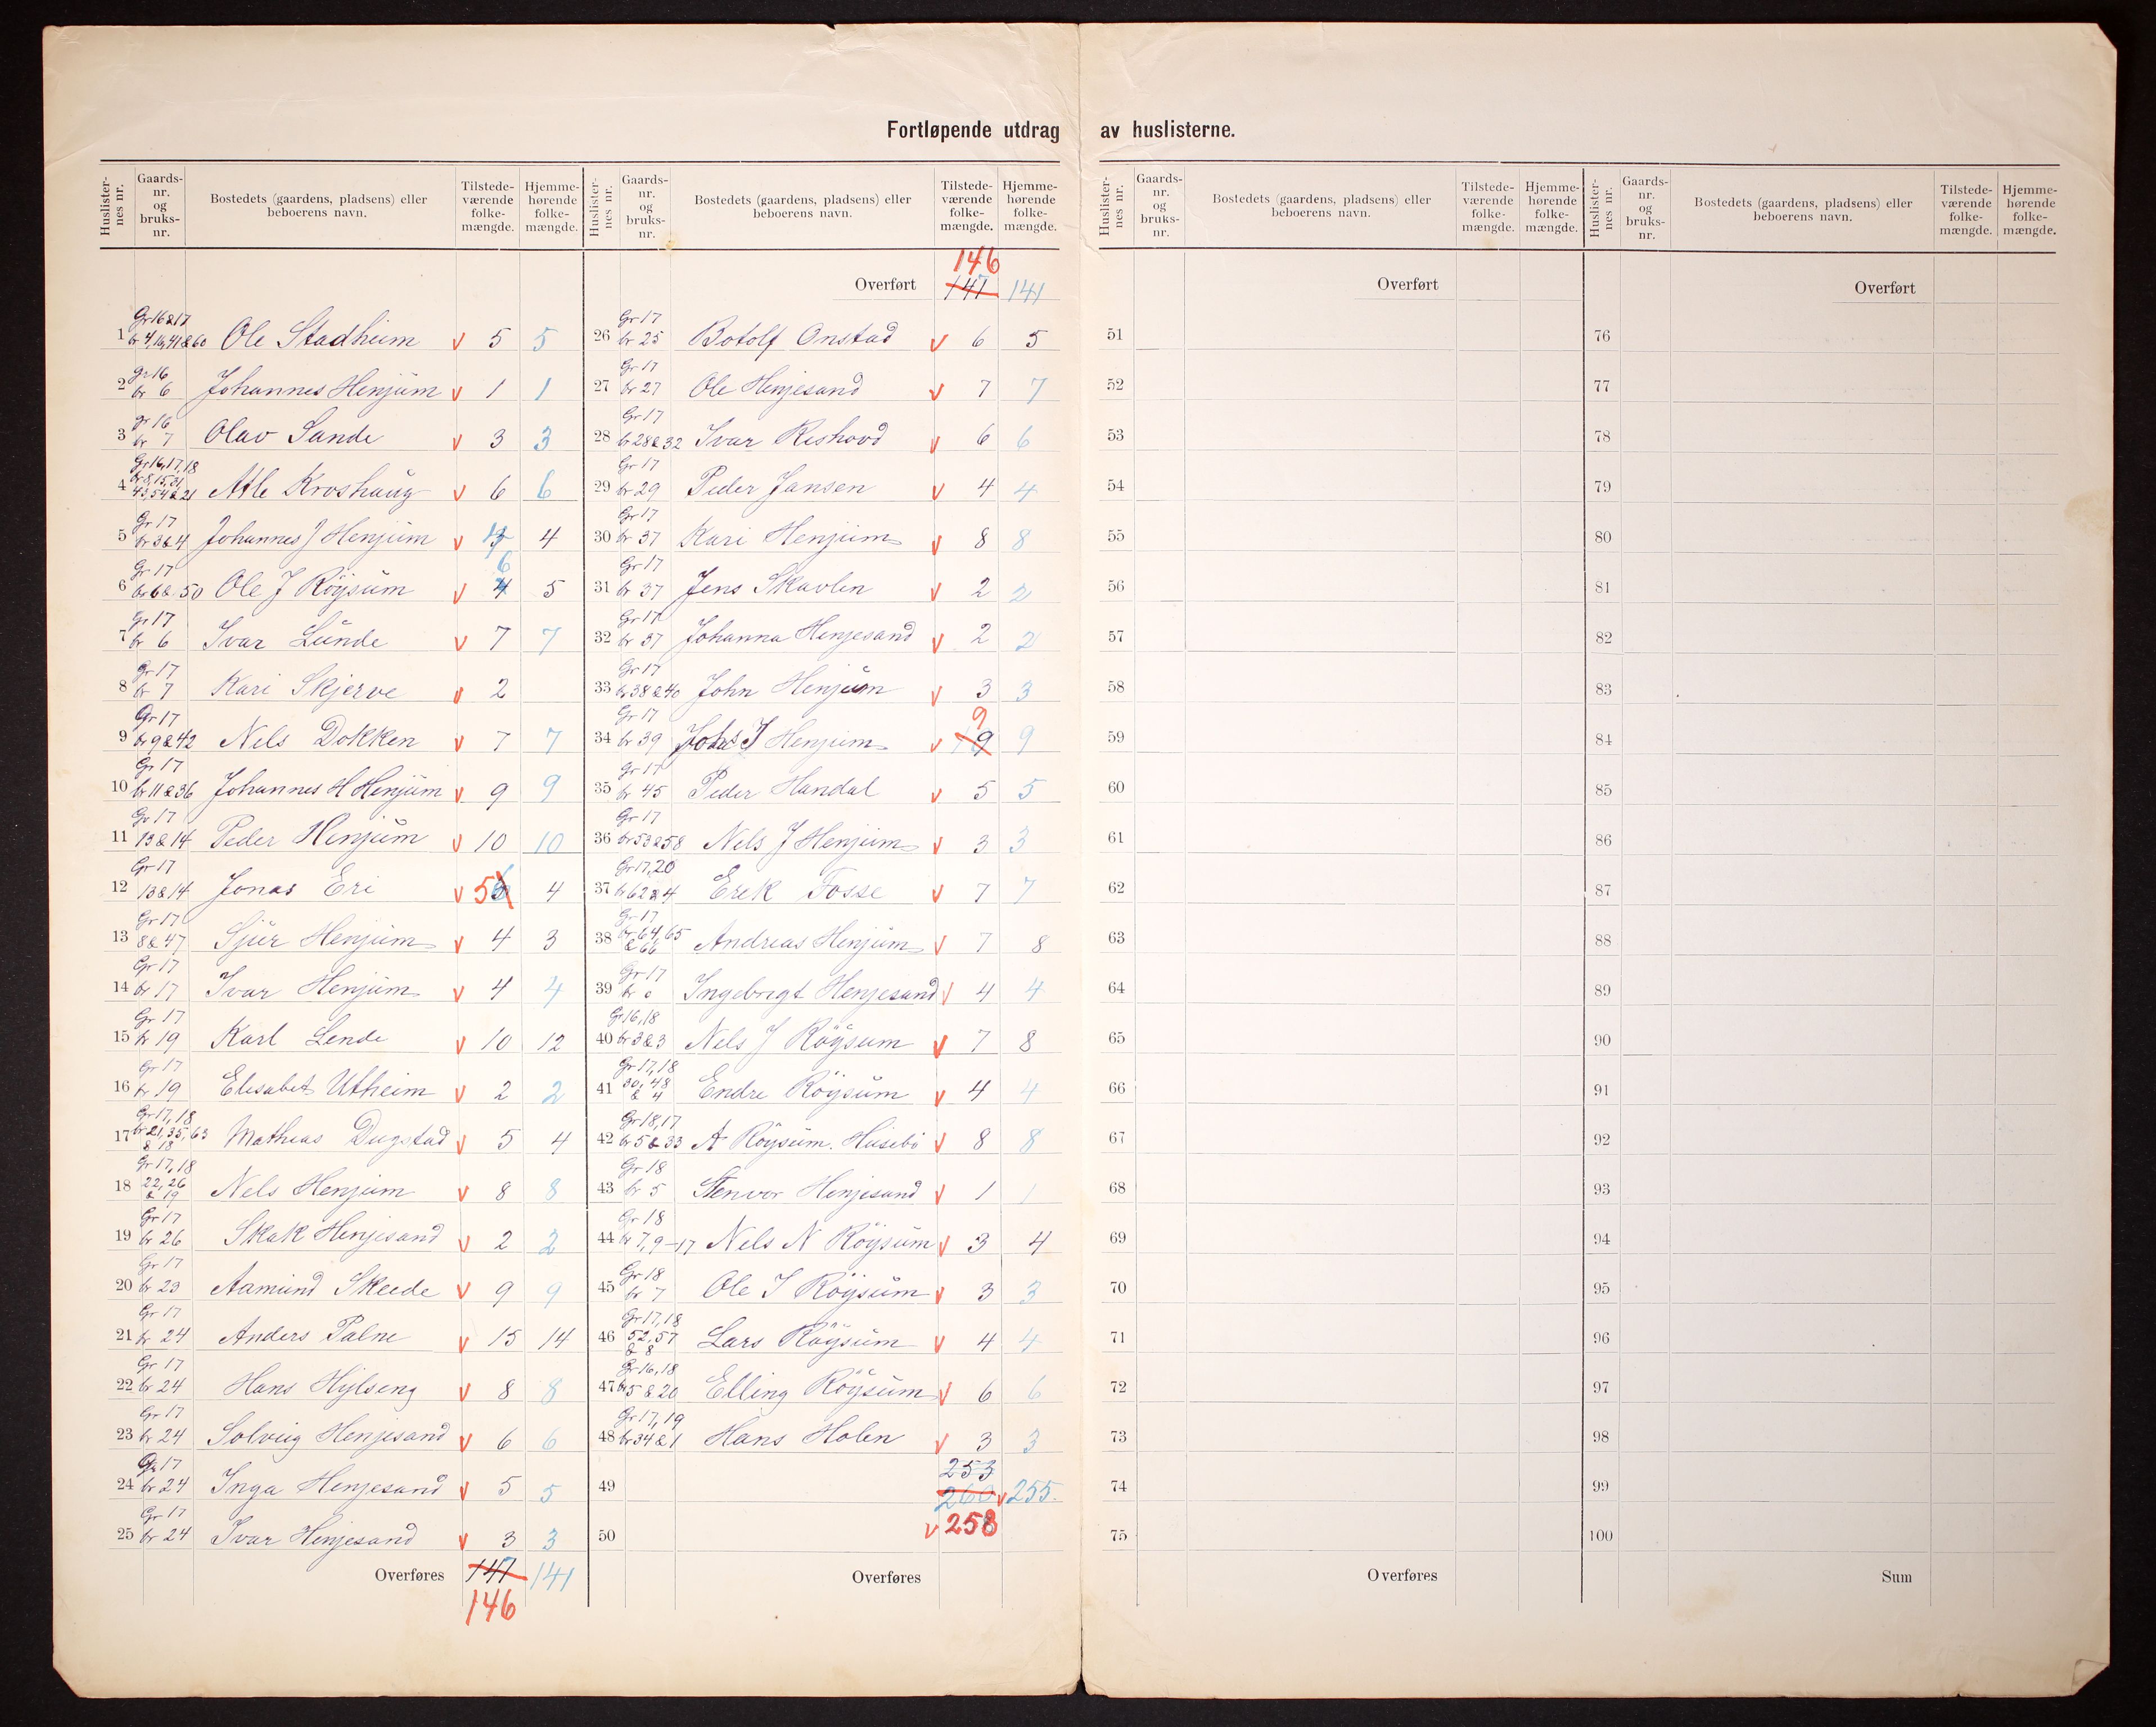 Fortløpende utdrag av huslisterne.
Huslisternes nr. Gaards-nr. og bruks-nr. Bostedets (gaardens, pladsens) eller beboerens navn. Tilstedeværende folkemængde. Hjemmehørende folkemængde.
1 Gr 16&17 br 4,16,41&60 Ole Stadheim v 5 5
2 gr 16 br 6 Johannes Henjum v 1 1
3 gr 16 br 7 Olav Sande v 3 3
4 Gr 16,17,18 br 8,15,31, 43,54&21 Atle Kroshaug v 6 6
5 Gr 17 br 3&4 Johannes J Henjum v 4
6 Gr 17 br 6&50 Ole J Röysum v 6 4 5
7 gr 17 br 6 Ivar Lunde v 7 7
8 gr 17 br 7 Kari Skjerve v 2
9 Gr 17 br 9&42 Nels Dokken v 7 7
10 Gr 17 br 11&36 Johannes H Henjum v 9 9
11 Gr 17 13&14 Peder Henjum v 10 10
12 Gr 17 13&14 Jonas Eri v 5 4
13 Gr 17 8&47 Sjur Henjum v 4 3
14 Gr 17 br 17 Ivar Henjum v 4 4
15 Gr 17 br 19 Karl Lende v 10 12
16 Gr 17 br 19 Elisabet Utheim v 2 2
17 Gr 17,18 br 21,35,63 & 18 Mathias Dugstad v 5 4
18 Gr 17,18 22,26 & 19 Nels Henjum v 8 8
19 Gr 17 br 26 Skak Henjesand v 2 2
20 Gr 17 br 23 Aamund Skeede v 9 9
21 Gr 17 br 24 Anders Palne v 15 14
22 Gr 17 br 24 Hans Hylseng v 8 8
23 Gr 17 br 24 Solveig Henjesand v 6 6
24 Gr 17 br 24 Inga Henjesand v 5 5
25 Gr 17 br 24 Ivar Henjesand v 3 3
Overføres 147 141
146
Huslisternes nr. Gaards-nr. og bruks-nr. Bostedets (gaardens, pladsens) eller beboerens navn. Tilstedeværende folkemængde. Hjemmehørende folkemængde.
146
Overført 147 141
26 Gr 17 br 25 Botolf Onstad v 6 5
27 Gr 17 br 27 Ole Henjesand v 7 7
28 Gr 17 br 28&32 Ivar Rishovd v 6 6
29 Gr 17 br 29 Peder Jansen v 4 4
30 Gr 17 br 37 Kari Henjum v 8 8
31 Gr 17 br 37 Jens Skavlen v 2 2
32 Gr 17 br 37 Johanna Henjesand v 2 2
33 Gr 17 br 38&40 John Henjum v 3 3
34 Gr 17 br 39 Johs J Henjum v 9 9
35 Gr 17 br 45 Peder Handal v 5 5
36 Gr 17 br 53&58 Nels J Henjum v 3 3
37 Gr 17,20 br 62&4 Erek Fosse v 7 7
38 Gr 17 br 64,65 &66 Andreas Henjum v 7 8
39 Gr 17 br 0 Ingebrigt Henjesand v 4 4
40 Gr 16,18 br 3&3 Nels J Röysum v 7 8
41 Gr 17,18 30,48 & 4 Endre Röysum v 4 4
42 Gr 18,17 br 5&33 A Röysum. Husebö v 8 8
43 Gr 18 br 5 Stenvor Henjesand v 1 1
44 Gr 18 br 7,9-17 Nels N Röysum v 3 4
45 Gr 18 br 7 Ole I Röysum v 3 3
46 Gr 17,18 52,57 & 8 Lars Röysum v 4 4
47 Gr 16,18 br 5&20 Elling Röysum v 6 6
48 Gr 17,19 br 34&1 Hans Holen v 3 3
253
49 260 v 255.
50 v 258
Overføres
Huslisternes nr. Gaards-nr. og bruks-nr. Bostedets (gaardens, pladsens) eller beboerens navn. Tilstedeværende folkemængde. Hjemmehørende folkemængde.
Overført
51
52
53
54
55
56
57
58
59
60
61
62
63
64
65
66
67
68
69
70
71
72
73
74
75
Overføres
Huslisternes nr. Gaards-nr. og bruks-nr. Bostedets (gaardens, pladsens) eller beboerens navn. Tilstedeværende folkemængde. Hjemmehørende folkemængde.
Overført
76
77
78
79
80
81
82
83
84
85
86
87
88
89
90
91
92
93
94
95
96
97
98
99
100
Sum